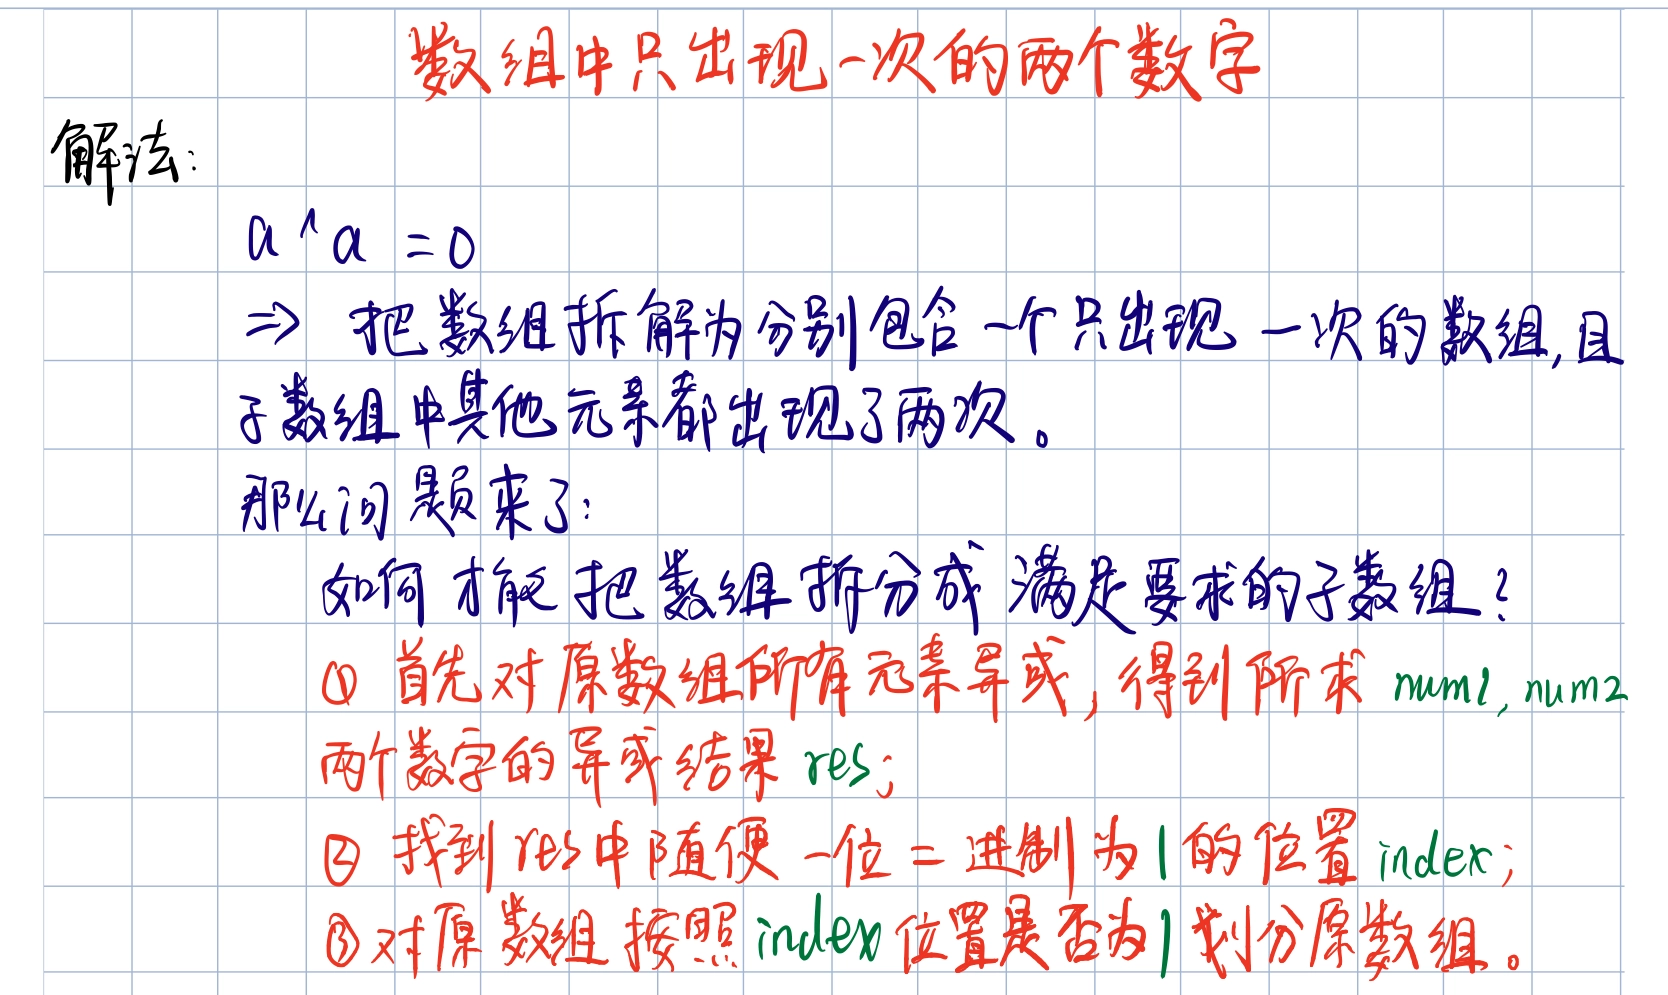 数组中只出现一次的两个数字
解法:
a^a =0
⇒ 把数组拆解为分别包含一个只出现一次的数组,且
子数组中其他元素都出现了两次。
那么问题来了:
如何才能把数组拆分成满足要求的子数组?
① 首先对原数组所有元素异或,得到所求 num1,num2
两个数字的异或结果 res;
② 找到res中随便一位二进制为1的位置index;
③ 对原数组按照index位置是否为1划分原数组。